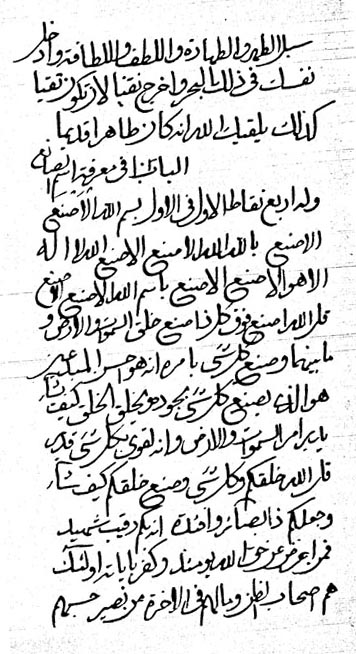 سبل الطهر والطهارة واللطف واللطافة وادخل
نفسك في ذلك البحر واخرج نقيا لان تكون تقيا
كذلك يلقيك الله انه كان طاهرا قديما
الباب في معرفة اسم الصانع
وله اربع نقاط الاول في الاول بسم الله الاصنع
الاصنع بالله الله الاصنع الاصنع الله لا اله
الا هو الاصنع الاصنع باسم الله الاصنع الاصنع
قل الله اصنع فوق كل ذا صنع خلق السموات والارض و
ما بينهما وصنع كل شيء بامره انه هو احسن
هو الذي يصنع كل شيء بجوده ويخلق الخلق كيف يشاء
بامر السموات والارض وانه لقوي بكل شيء قدير
قل الله خلقكم وكل شيء وصنع خلقكم كيف شاء
وجعلكم ذا بصائر وافئدة انه رقيب شهيد
فمن اعرض عن الله يومئذ وكفر باياته اولئك
هم اصحاب الظن ومالهم في الاخرة من نصير